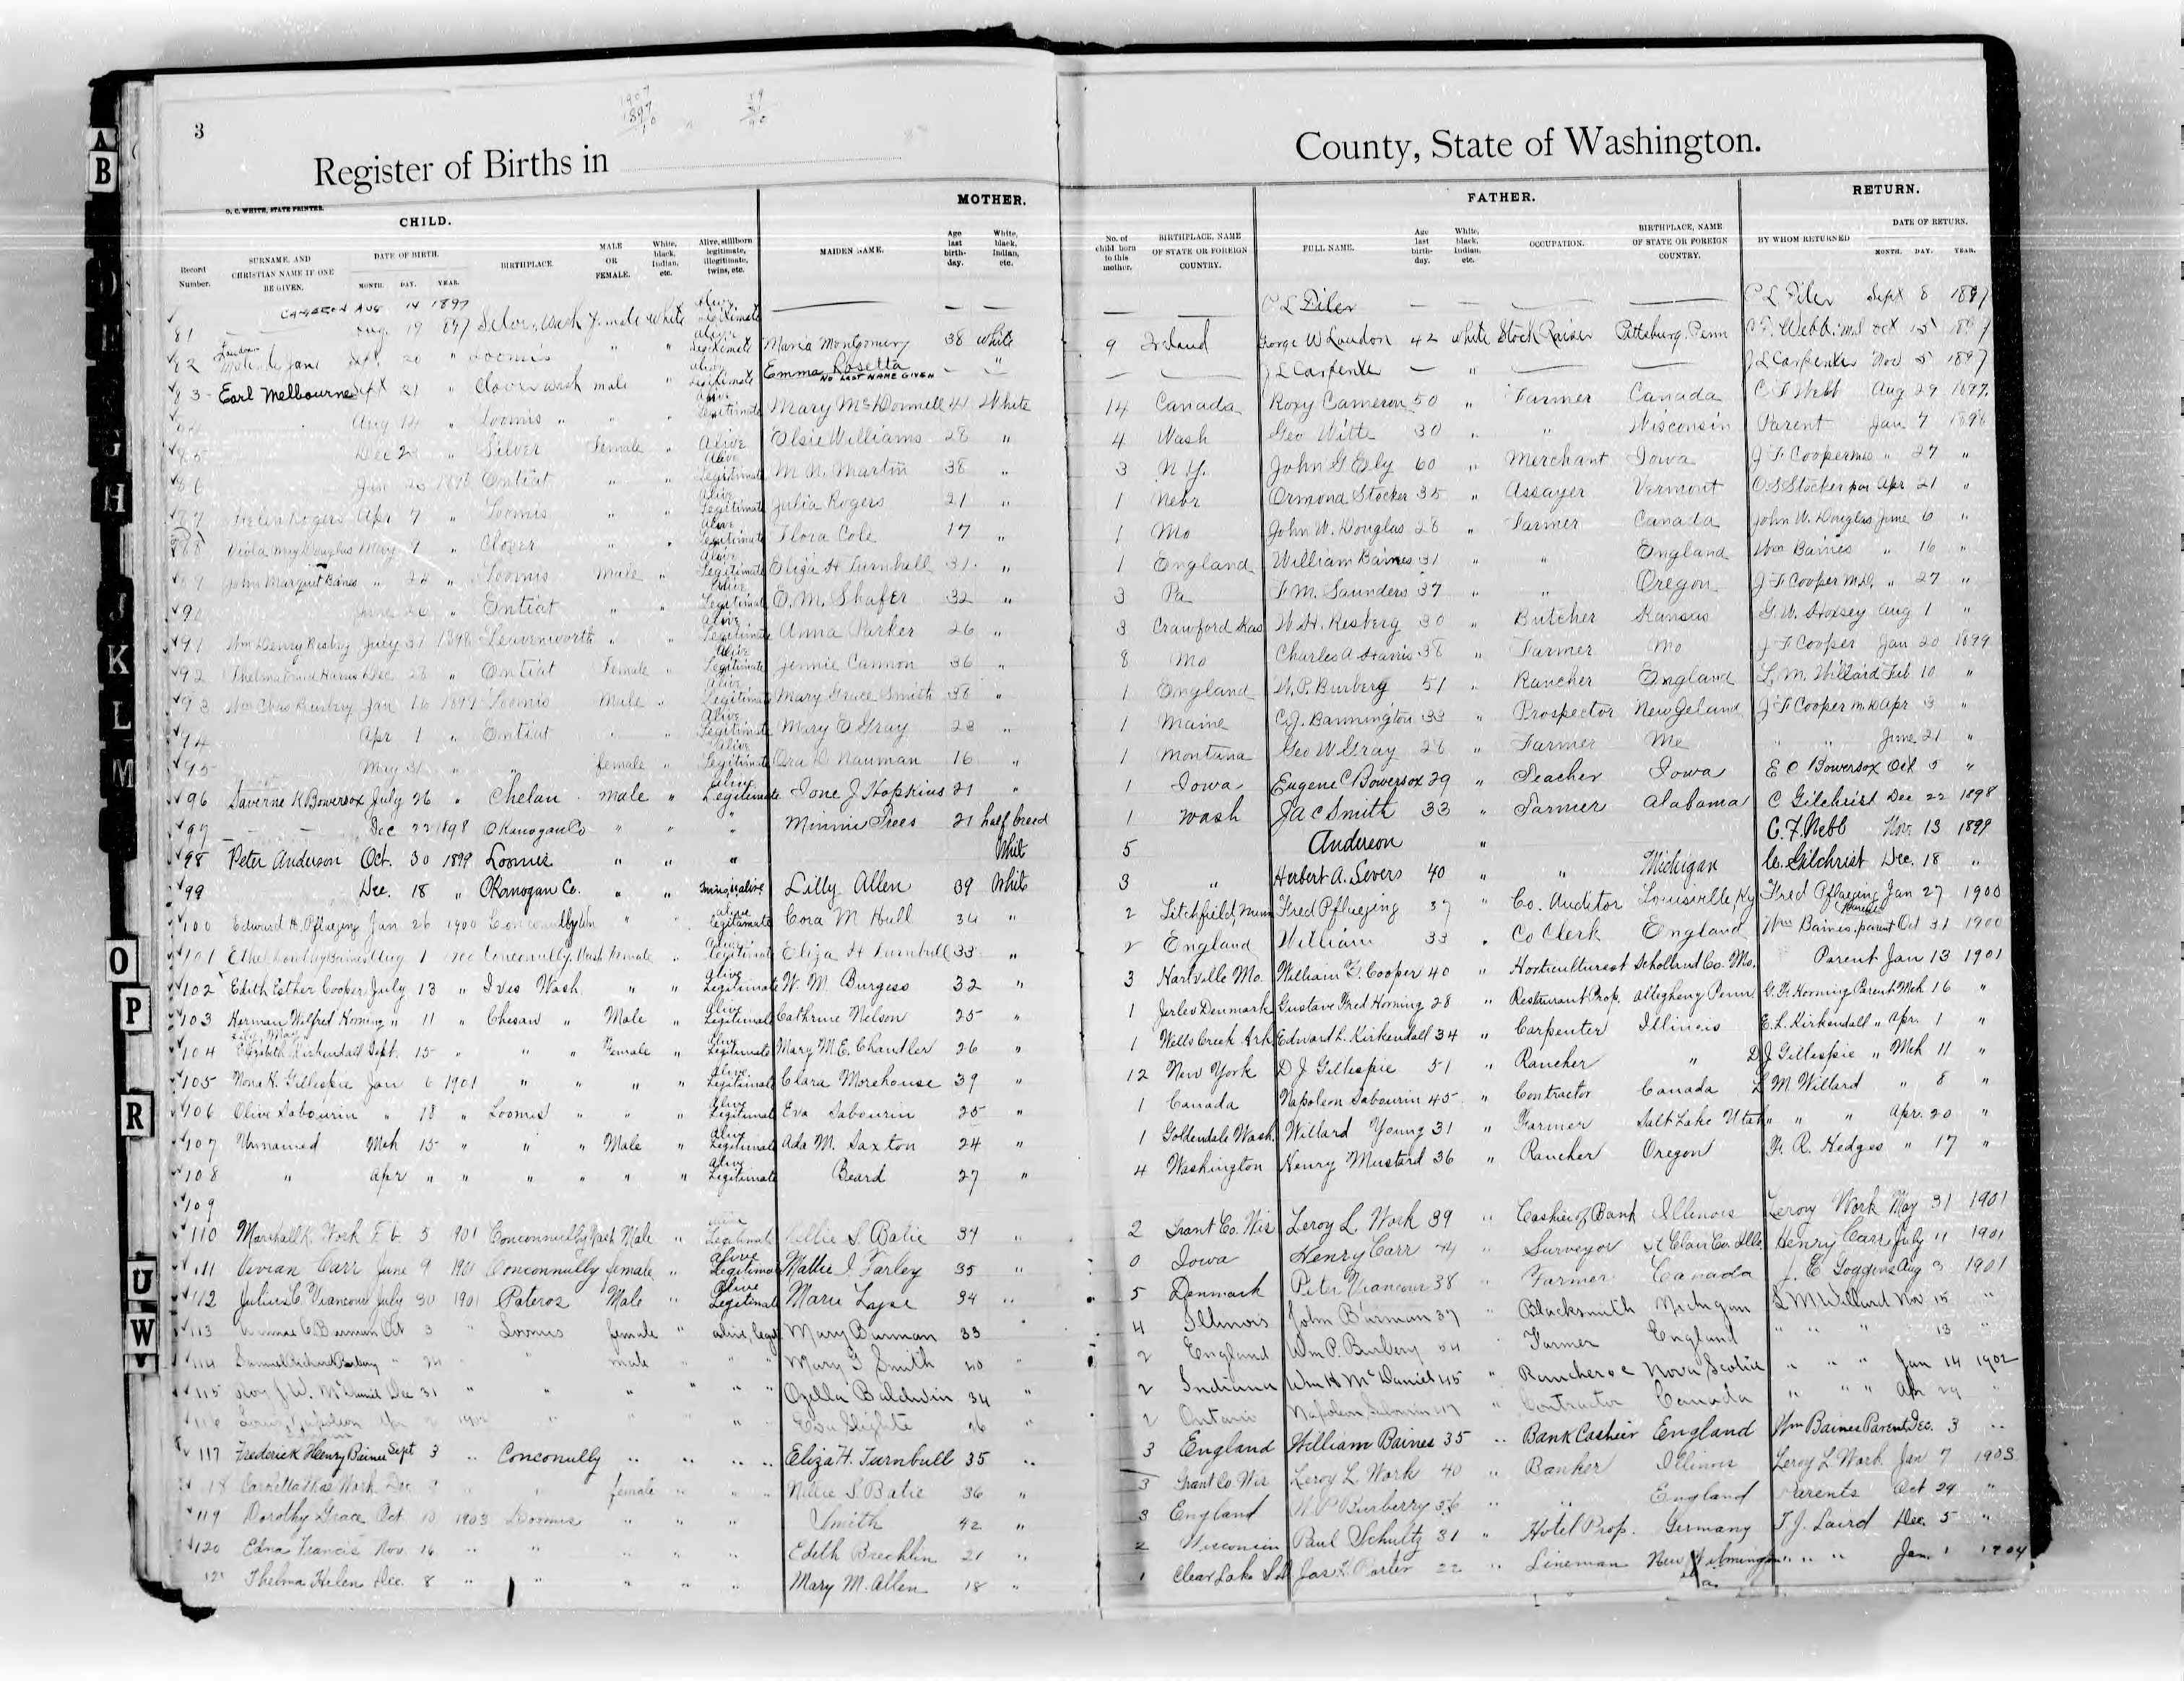 3
1907
1897
10
Register of Births in
County, State of Washington.
O. C. WHITE, STATE PRINTER.
CHILD.
MOTHER.
FATHER.
RETURN.
Record Number.
SURNAME, AND CHRISTIAN NAME IF ONE BE GIVEN.
DATE OF BIRTH.
MONTH. DAY. YEAR.
BIRTHPLACE.
MALE OR FEMALE.
White, black, Indian, etc.
Alive, stillborn legitimate, illegitimate, twins, etc.
MAIDEN NAME.
Age last birth-day.
White, black, Indian, etc.
No. of child born to this mother.
BIRTHPLACE, NAME OF STATE OR FOREIGN COUNTRY.
FULL NAME.
Age last birth-day.
White, black, Indian, etc.
OCCUPATION.
BIRTHPLACE, NAME OF STATE OR FOREIGN COUNTRY.
BY WHOM RETURNED
DATE OF RETURN.
MONTH. DAY. YEAR.
CAMERON AUG 14 1897
81 Aug. 19 897 Wash female White Alive Legitimate — — — — — C L — — — — C L Sept 8 1897
82 Jane Sept. 20 " Loomis " " alive Legitimate Maria Montgomery 38 White 9 Ireland George W Loudon 42 White Stock Raiser Pittsburg, Penn C. F. Webb. MD Oct 15 1897
83 Earl Melbourne Sept 21 " Clover Wash male " alive Legitimate Emma Rosetta NO LAST NAME GIVEN — " — — J L Carpenter — " — — J L Carpenter Nov 5 1897
84 Aug 14 " Loomis " " " Alive Legitimate Mary McDonnell 41 White 14 Canada Roxy Cameron 50 " Farmer Canada C F Webb Aug 29 1897.
85 Dec 2 " Silver Female " Alive Elsie Williams 28 " 4 Wash Geo Witte 30 " " Wisconsin Parent Jan 7 1898
86 Jan 23 1898 Entiat " " Alive Legitimate M. N. Martin 38 " 3 N. Y. John G Ely 60 " Merchant Iowa J F Cooper MD " 27 "
87 Helen Rogers Apr 7 " Loomis " " Alive Legitimate Julia Rogers 21 " 1 Nebr Ormond Stocker 35 " Assayer Vermont O. S Stocker par Apr 21 "
88 Viola May Douglas May 9 " Clover " " Alive Legitimate Flora Cole 17 " 1 Mo John W. Douglas 28 " Farmer Canada John W. Douglas June 6 "
89 John Baines " 22 " Loomis Male " Alive Legitimate Eliza H Turnbull 31 " 1 England William Baines 31 " " England Wm Baines " 16 "
90 June " Entiat " " Alive Legitimate O. M. Shafer 32 " 3 Pa F. M. Saunders 37 " " Oregon J F Cooper M.D. " 27 "
91 Wm Henry Risberg July 31 1898 Leavenworth " " alive Legitimate Anna Parker 26 " 3 Crawford Kas W. H. Risberg 30 " Butcher Kansas G. W. Hoxsey Aug 1 "
92 Thelma Harris Dec 28 " Entiat Female " Alive Legitimate Jennie Cannon 36 " 8 Mo Charles A Harris 38 " Farmer Mo J F Cooper Jan 20 1899
93 Wm Chas Burbery Jan 16 1899 Loomis Male " Alive Legitimate Mary Grace Smith 38 " 1 England W. P. Burberg 51 " Rancher England L. M. Willard Feb 10 "
94 Apr 1 " Entiat " " Alive Legitimate Mary E Gray 23 " 1 Maine C. J. Bannington 33 " Prospector New Zeland J F Cooper M.D Apr 3 "
95 May 31 " " female " Alive Legitimate Ora D Nauman 16 " 1 Montana Geo W Gray 28 " Farmer Me " " June 21 "
96 Saverne K Bowersox July 26 " Chelan male " alive Legitimate Ione J Hopkins 21 " 1 Iowa Eugene C Bowersox 29 " Teacher Iowa E C Bowersox Oct 5 "
97 — — Dec 22 1898 Okanogan Co " " " Minnie Trees 21 half breed 1 Wash Jac Smith 33 " Farmer Alabama C Gilchrist Dec 22 1898
98 Peter Anderson Oct. 30 1899 Loomis " " " White 5 Anderson " C. F. Webb Nov. 13 1899
99 Dec. 18 " Okanogan Co. " " alive Lilly Allen 39 White 3 " Herbert A. Severs 40 " " Michigan C. Gilchrist Dec. 18 "
100 Edward H. Pflueging Jan 26 1900 Conconully Wn " " alive Legitimate Cora M Hull 34 " 2 Litchfield, Minn Fred Pflueging 37 " Co. Auditor Louisville, Ky Fred Pflueging Parent Jan 27 1900
101 Ethel Baines Aug 1 1900 Conconully, Wash Female " alive Legitimate Eliza H Turnbull 33 " 2 England William 33 " Co Clerk England Wm Baines, parent Oct 31 1900
102 Edith Esther Cooper July 13 " Ives Wash. " " alive Legitimate W. M. Burgess 32 " 3 Hartville Mo. William F. Cooper 40 " Horticulturest Co. Mo. Parent Jan 13 1901
103 Herman Wilfred Horning " 11 " Chesaw " Male " Alive Legitimate Cathrine Nelson 25 " 1 Denmark Gustave Fred Horning 28 " Restaurant Prop. Allegheny Penn G. F. Horning Parent Mch 16 "
104 Lily Mary Elizabeth Kirkendall Sept. 15 " " " Female " Alive Legitimate Mary M. E. Chandler 26 " 1 Wells Creek Ark Edward L. Kirkendall 34 " Carpenter Illinois E. L. Kirkendall " Apr. 1 "
105 Nona K. Gillespie Jan 6 1901 " " " " Alive Legitimate Clara Morehouse 39 " 12 New York D J Gillespie 51 " Rancher " D J Gillespie " Mch 11 "
106 Olive Sabourin " 18 " Loomis " " " Alive Legitimate Eva Sabourin 25 " 1 Canada Napoleon Sabourin 45 " Contractor Canada L M Willard " 8 "
107 Unnamed Mch 15 " " " Male " Alive Legitimate Ada M. Saxton 24 " 1 Goldendale Wash. Willard Young 31 " Farmer Salt Lake Utah " " " Apr. 20 "
108 " Apr " " " " " " Alive Legitimate Beard 27 " 4 Washington Henry Mustard 36 " Rancher Oregon F. R. Hedges " 17 "
109
110 Marshall K. Work Feb 5 1901 Conconnully Wash Male " Alive Legitimate Nellie S Batie 34 " 2 Grant Co. Wis Leroy L. Work 39 " Cashier of Bank Illinois Leroy Work May 31 1901
111 Vivian Carr June 9 1901 Conconnully female " alive Legitimate Mattie J Farley 35 " 0 Iowa Henry Carr 44 " Surveyor St Clair Co. Ills Henry Carr July 11 1901
112 Julius C. Viancour July 30 1901 Pateros Male " Alive Legitimate Marie 34 " 5 Denmark Peter Viancour 38 " Farmer Canada J. E Goggins Aug 3 1901
113 C. Burman Oct 3 " Loomis female " alive, legit Mary Burman 33 " 4 Illinois John Burman 37 " Blacksmith Michigan L M Willard Nov 15 "
114 Samuel Richard Burbery " 24 " " male " " " Mary G Smith 40 " 2 England Wm P. Burbery 54 " Farmer England " " " 13 "
115 Roy J. W. McDaniel Dec 31 " " " " " " Ozella Baldwin 34 " 2 Indiana Wm H McDaniel 45 " Rancher Nova Scotia " " " Jan 14 1902
116 Louis Napoleon 1902 " " " Eva 26 2 Ontario Napoleon Sabourin 47 " Contractor Canada " " " Ap 29 "
117 Frederick Henry Baines Sept 3 " Conconully " " " " Eliza H. Turnbull 35 " 3 England William Baines 35 " Bank Cashier England Wm Baines Parent Dec. 3 "
118 Work Dec 9 " " female " " " Nellie S Batie 36 " 3 Grant Co Wis Leroy L Work 40 " Banker Illinois Leroy L Work Jan 7 1903
119 Dorothy Grace Oct 10 1903 Loomis " " " Smith 42 " 3 England W P Burberry 56 " " England Parents Oct 24 "
120 Edna Francis Nov. 16 " " " " " Edith Brechlin 21 " 2 Wisconsin Paul Schultz 31 " Hotel Prop. Germany T. J. Laird Dec. 5 "
121 Thelma Helen Dec. 8 " " " " " Mary M. Allen 18 " 1 Clear Lake S D Jas. F. Porter 22 " Lineman New Wilmington Pa " " " Jan. 1 1904
A
B
G
H
J
K
L
M
O
P
R
U
W